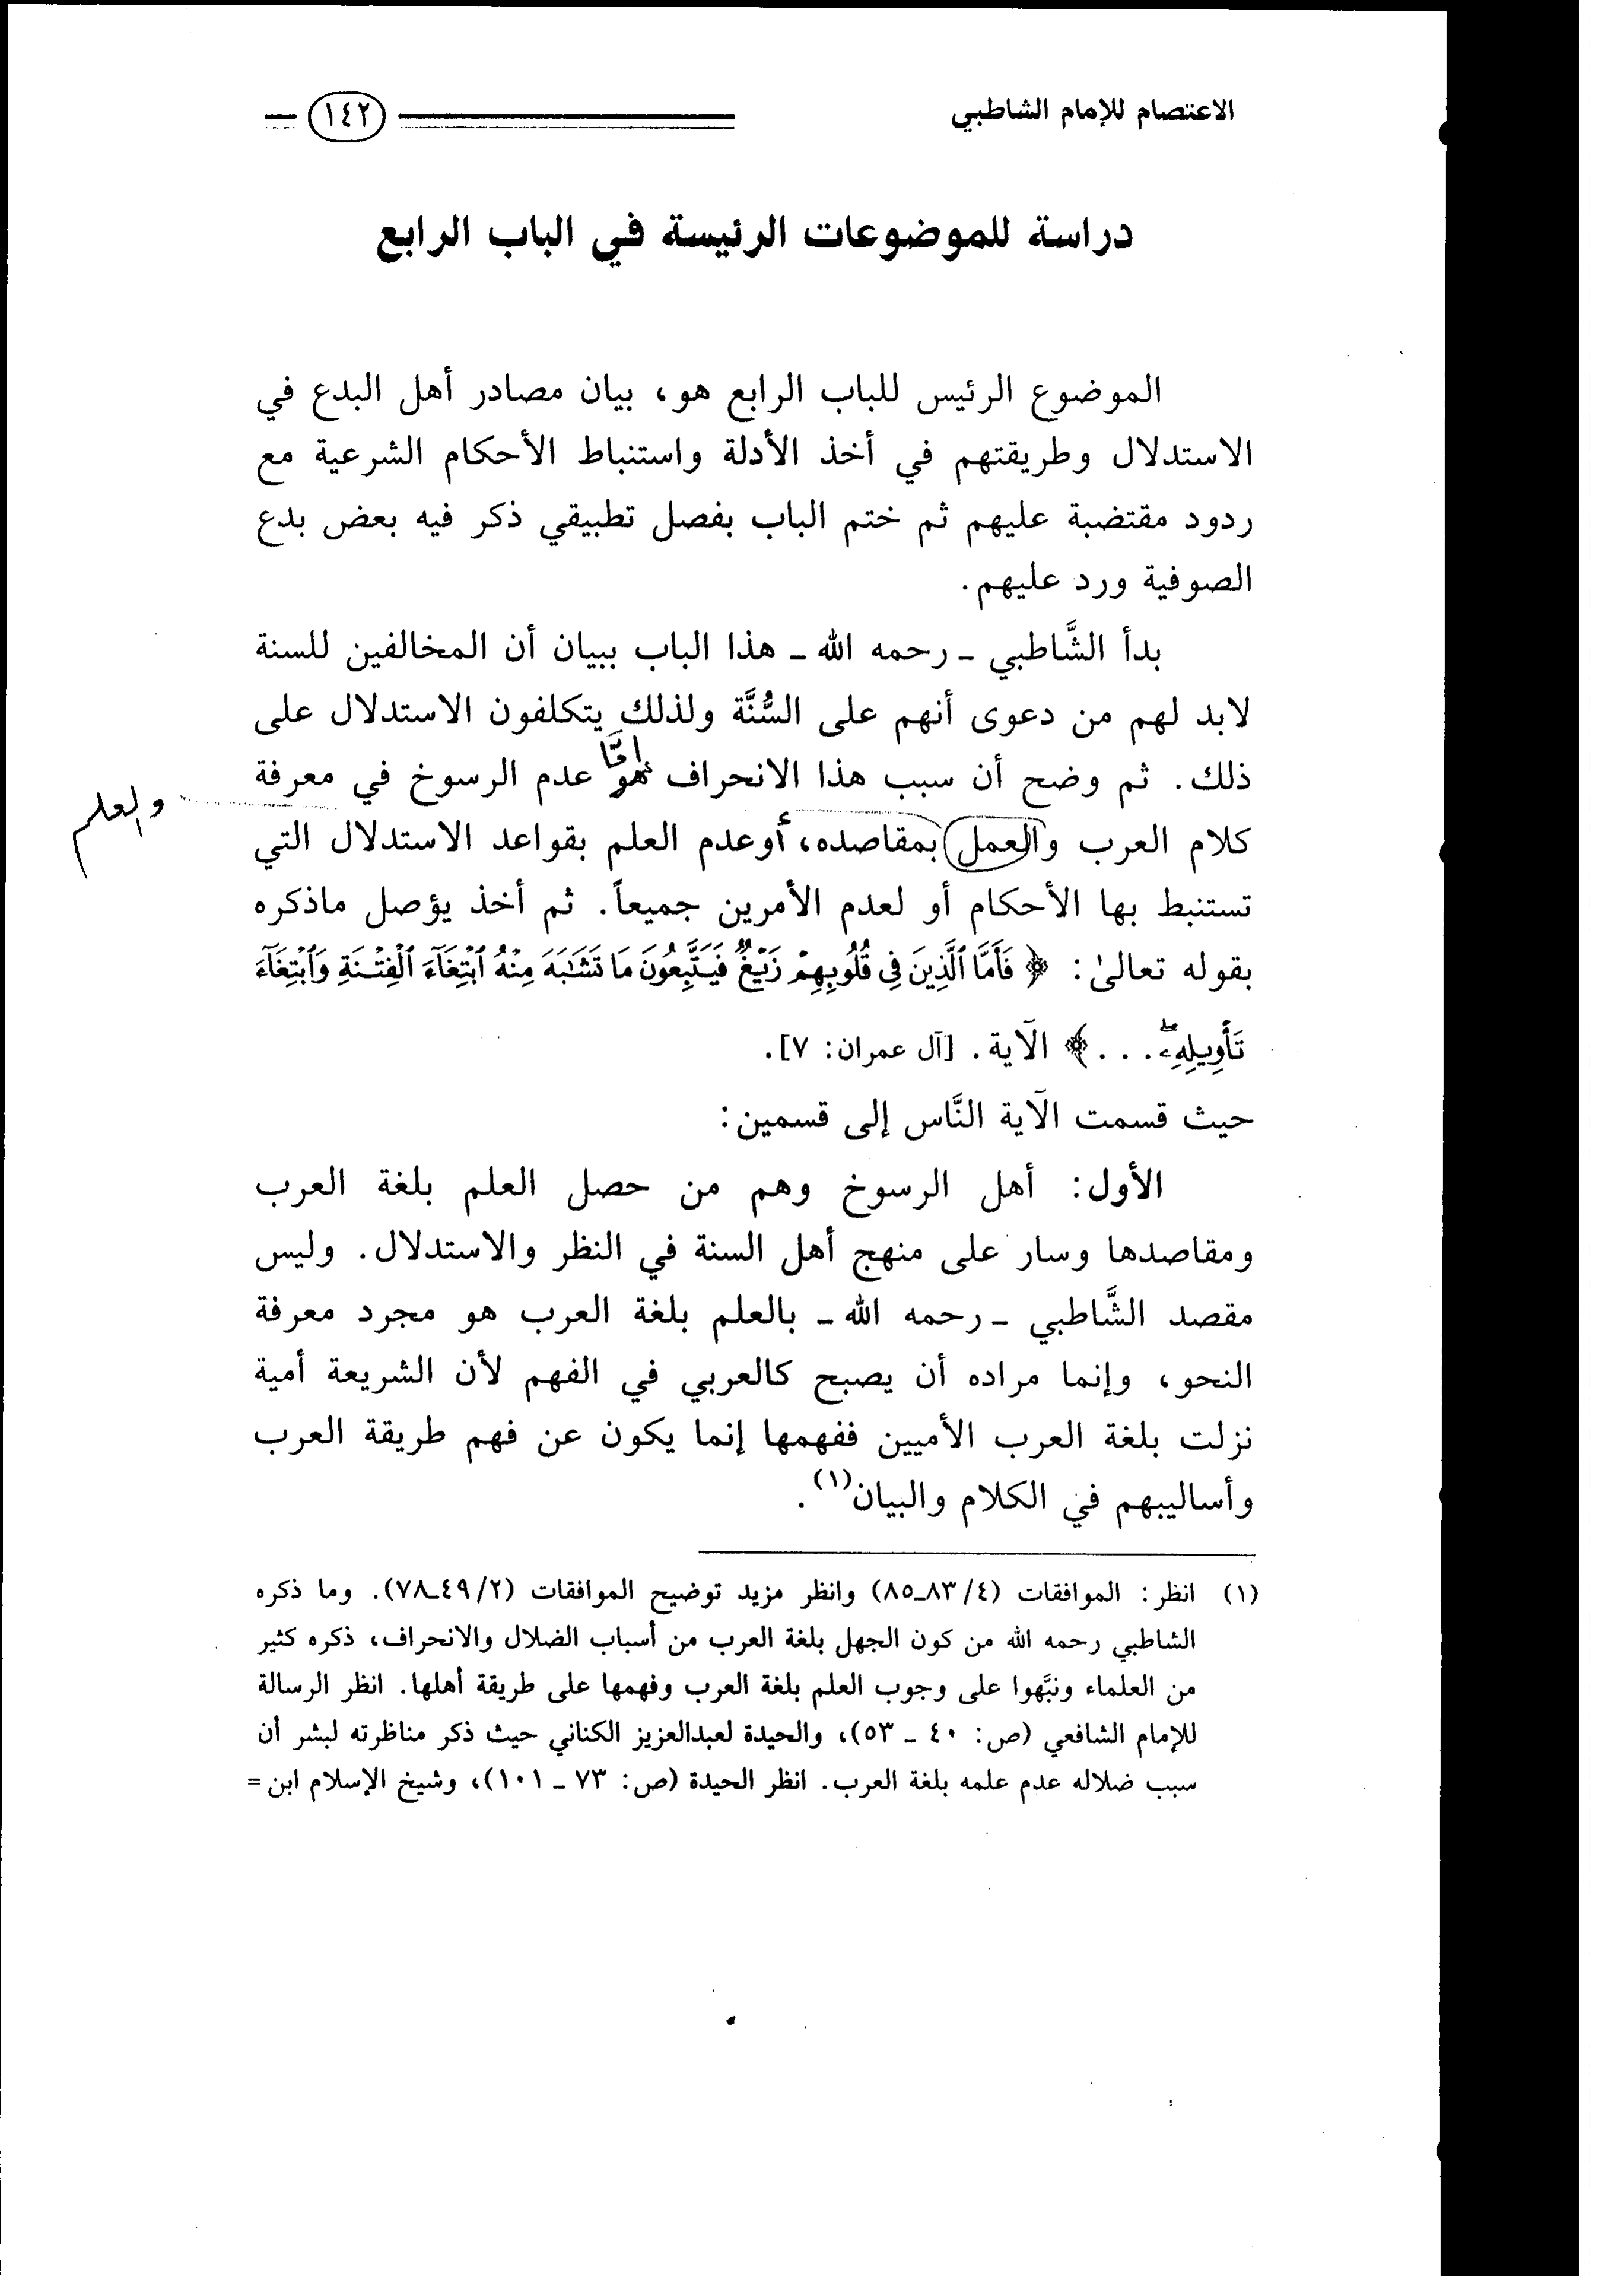 الاعتصام للإمام الشاطبي
١٤٢
دراسة للموضوعات الرئيسة في الباب الرابع
الموضوع الرئيس للباب الرابع هو، بيان مصادر أهل البدع في
الاستدلال وطريقتهم في أخذ الأدلة واستنباط الأحكام الشرعية مع
ردود مقتضبة عليهم ثم ختم الباب بفصل تطبيقي ذكر فيه بعض بدع
الصوفية ورد عليهم.
بدأ الشَّاطبي ـ رحمه الله ـ هذا الباب ببيان أن المخالفين للسنة
لابد لهم من دعوى أنهم على السُّنَّة ولذلك يتكلفون الاستدلال على
إمَّا
ذلك. ثم وضح أن سبب هذا الانحراف هو عدم الرسوخ في معرفة
والعلم
كلام العرب والعمل بمقاصده، أوعدم العلم بقواعد الاستدلال التي
تستنبط بها الأحكام أو لعدم الأمرين جميعاً. ثم أخذ يؤصل ماذكره
بقوله تعالىٰ: ﴿ فَأَمَّا ٱلَّذِينَ فِى قُلُوبِهِمْ زَيْغٌ فَيَتَّبِعُونَ مَا تَشَٰبَهَ مِنْهُ ٱبْتِغَآءَ ٱلْفِتْنَةِ وَٱبْتِغَآءَ
تَأْوِيلِهِۦۖ . . . ﴾ الآية. [آل عمران: ٧].
حيث قسمت الآية النَّاس إلى قسمين:
الأول: أهل الرسوخ وهم من حصل العلم بلغة العرب
ومقاصدها وسار على منهج أهل السنة في النظر والاستدلال. وليس
مقصد الشَّاطبي ـ رحمه الله ـ بالعلم بلغة العرب هو مجرد معرفة
النحو، وإنما مراده أن يصبح كالعربي في الفهم لأن الشريعة أمية
نزلت بلغة العرب الأميين ففهمها إنما يكون عن فهم طريقة العرب
وأساليبهم في الكلام والبيان(١).
(١) انظر: الموافقات (٤/ ٨٣ـ٨٥) وانظر مزيد توضيح الموافقات (٢/ ٤٩ـ٧٨). وما ذكره
الشاطبي رحمه الله من كون الجهل بلغة العرب من أسباب الضلال والانحراف، ذكره كثير
من العلماء ونبَّهوا على وجوب العلم بلغة العرب وفهمها على طريقة أهلها. انظر الرسالة
للإمام الشافعي (ص: ٤٠ ـ ٥٣)، والحيدة لعبدالعزيز الكناني حيث ذكر مناظرته لبشر أن
سبب ضلاله عدم علمه بلغة العرب. انظر الحيدة (ص: ٧٣ ـ ١٠١)، وشيخ الإسلام ابن =